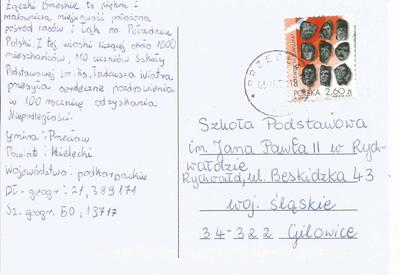 Łączki Brzeskie to piękna i
malownicza miejscowość położona
pośród lasów i łąk na Południu
Polski. Z tej wioski liczącej około 1000
mieszkańców, 110 uczniów Szkoły
Podstawowej im. ks. Tadeusza Wiatra
przesyła serdeczne pozdrowienia
w 100 rocznicę odzyskania
Niepodległości.
Gmina: Przecław
Powiat: Mielecki
województwo: podkarpackie
Dł. geogr: 21,389171
Sz. geogr. 50,13717
POLSKA 2,60 zł
Szkoła Podstawowa
im. Jana Pawła II w Rych-
wałdzie
Rychwałd, ul. Beskidzka 43
woj. śląskie
34-322 Gilowice